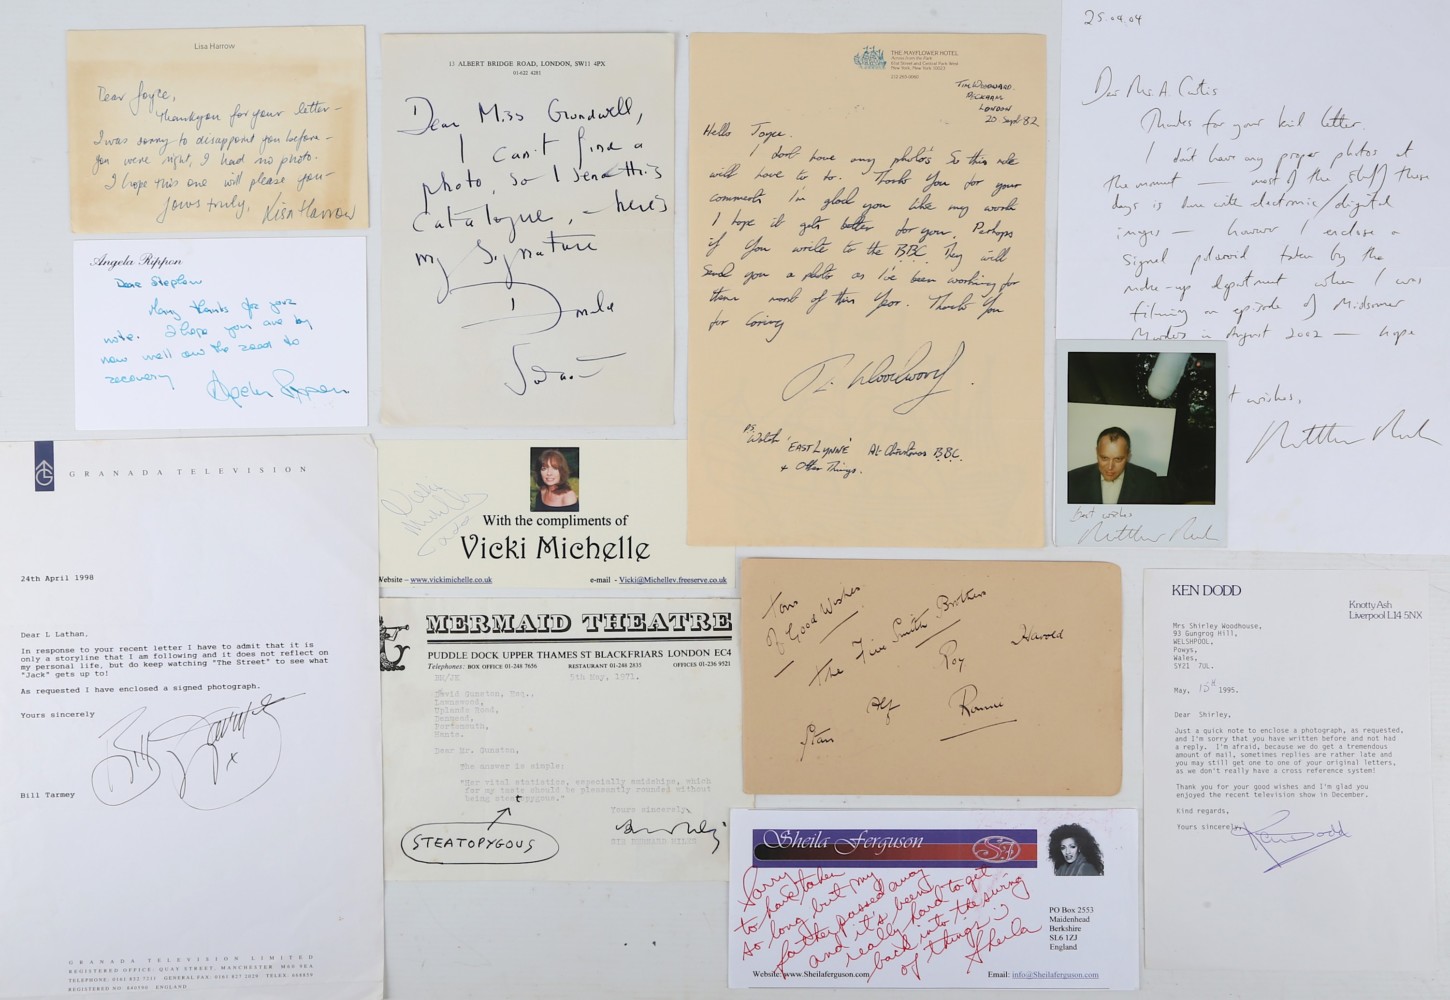 Lisa Harrow
Dear Joyce,
Thankyou for your letter -
I was sorry to disappoint you before -
you were right, I had no photo.
I hope this one will please you -
Yours truly, Lisa Harrow
Angela Rippon
Dear Stephen
Many thanks for your
note. I hope you are by
now well on the road to
recovery
Angela Rippon
13 ALBERT BRIDGE ROAD, LONDON, SW11 4PX
01-622 4281
Dear Miss Grundwell,
I can't find a
photo, so I send this
catalogue, - here's
my signature
THE MAYFLOWER HOTEL
61st Street and Central Park West
New York, New York 10023
TIM WOODWARD.
PECKHAM
LONDON
20 Sept 82
Hello Joyce.
I dont have any photo's so this note
will have to do. Thank you for your
comments I'm glad you like my work
I hope it gets better for you. Perhaps
if you write to the BBC they will
send you a photo as I've been working for
them most of this year. Thank You
for caring
T. Woodward.
P.S.
Watch 'EAST LYNNE' At Christmas B.B.C.
+ Other Things.
25.09.04
Dear Mr. A. Curtis
Thanks for your kind letter.
I don't have any proper photos at
the moment — most of the stuff these
days is done with electronic/digital
images — however I enclose a
signed polaroid taken by the
make-up department when I was
filming an episode of Midsomer
Murders in August 2002 — hope
t wishes,
best wishes
GRANADA TELEVISION
24th April 1998
Dear L Lathan,
In response to your recent letter I have to admit that it is
only a storyline that I am following and it does not reflect on
my personal life, but do keep watching "The Street" to see what
"Jack" gets up to!
As requested I have enclosed a signed photograph.
Yours sincerely
Bill Tarmey x
Bill Tarmey
GRANADA TELEVISION LIMITED
REGISTERED OFFICE: QUAY STREET, MANCHESTER M60 9EA
TELEPHONE: 0161 832 7211 GENERAL FAX: 0161 827 2029 TELEX: 668859
REGISTERED NO 840590 ENGLAND
Vicky
Michelle
With the compliments of
Vicki Michelle
Website – www.vickimichelle.co.uk e-mail - Vicki@Michellev.freeserve.co.uk
MERMAID THEATRE
PUDDLE DOCK UPPER THAMES ST BLACKFRIARS LONDON EC4
Telephones: BOX OFFICE 01-248 7656 RESTAURANT 01-248 2835 OFFICES 01-236 9521
BM/JK 5th May, 1971.
David Gunston, Esq.,
Hants.
Dear Mr. Gunston,
The answer is simple:
"Her vital statistics, especially amidships, which
for my taste should be pleasantly rounded without
being steatopygous."
Yours sincerely,
SIR BERNARD MILES
STEATOPYGOUS
Tons
of Good Wishes
The Five Smith Brothers
Harold
Roy
Alf
Ronnie
Stan
Sheila Ferguson
Sf
Sorry
to have taken
so long but my
father passed away
and it's been
really hard to get
back into the swing
of things
Sheila
PO Box 2553
Maidenhead
Berkshire
SL6 1ZJ
England
Website: www.Sheilaferguson.com Email: info@Sheilaferguson.com
KEN DODD
Knotty Ash
Liverpool L14 5NX
Mrs Shirley Woodhouse,
93 Gungrog Hill,
WELSHPOOL,
Powys,
Wales,
SY21 7UL.
May, 15th 1995.
Dear Shirley,
Just a quick note to enclose a photograph, as requested,
and I'm sorry that you have written before and not had
a reply. I'm afraid, because we do get a tremendous
amount of mail, sometimes replies are rather late and
you may still get one to one of your original letters,
as we don't really have a cross reference system!
Thank you for your good wishes and I'm glad you
enjoyed the recent television show in December.
Kind regards,
Yours sincerely
Ken Dodd